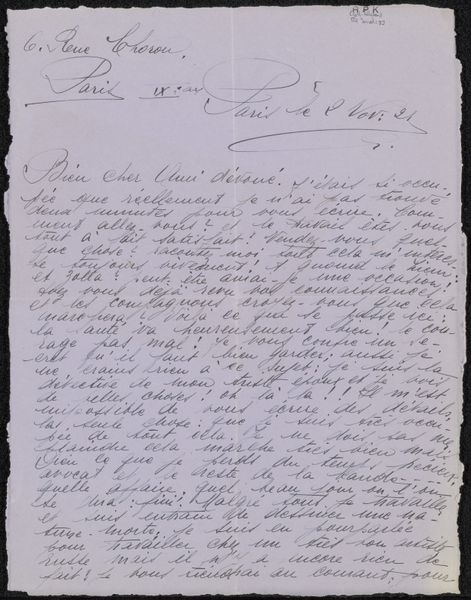 6. Rue Choron.
Paris IX: arr
Paris le 8 Nov: 21
Bien cher Ami dévoué. J'étais si occu-
pée que réellement je n'ai pas trouvé
deux minutes pour vous écrire. Com-
ment allez-vous? et le travail êtes-vous
tout à fait satisfait? Vendez-vous quel-
que chose? racontez-moi tout cela m'intéres-
se toujours
et Zolla? peut être aurai-je une occasion!
avez vous déjà revu vos connaissances
et les compagneons croyez-vous que cela
marchera? Voilà ce que se passe ici:
la santé va heureusement bien! le cou-
rage pas mal! Je vous confie un se-
cret qu'il faut bien garder; aussi je
ne crains rien à ce sujet: je suis la
détective de mon triste époux et je vois
de belles choses! oh la la!! Il m'est
impossible de vous écrire des détails,
la seule chose: que je suis très occu-
pée de tout cela. Je ne dois pas me
plaindre cela marche très bien mais
rien ce que je perds du temps précieux,
avocat et le reste de la bande
quelle affaire, quel beau jour on l'on
Malgré tout je travaille
et suis entrain de dessiner une na-
ture-morte, je suis en pourparler
pour travailler chez un très bon artiste
russe mais il n'y a encore rien de
fait! Je vous tiendrai au courant. pour